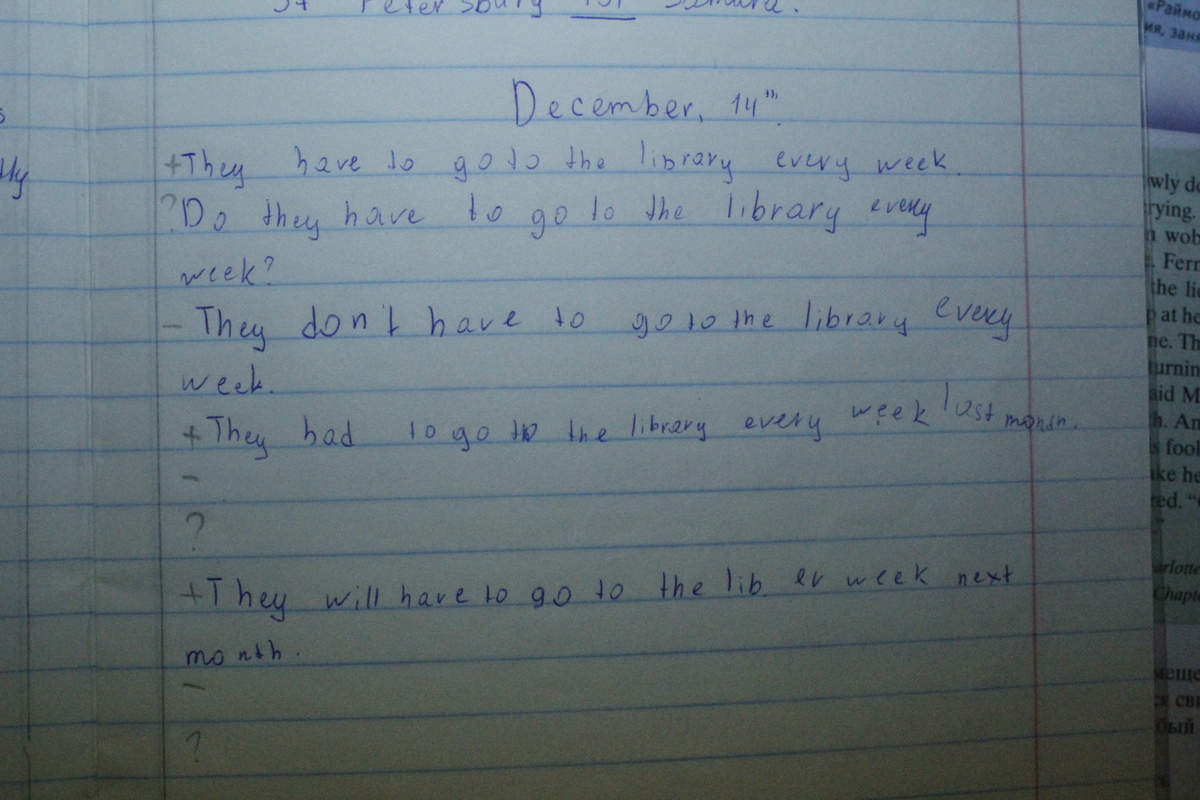 St Petersburg Samara.
December, 14th.
+ They have to go to the library every week.
? Do they have to go to the library every
week?
- They don't have to go to the library every
week.
+ They had to go to the library every week last month.
-
?
+ They will have to go to the lib ev week next
month.
-
?
«Раймо
ия, заня
wly de
rying.
n wob
. Ferr
the lie
p at he
ne. Th
turnin
aid M
h. An
s fool
ake he
red. "
"
arlotte
Chapte
меще
ся сви
бый